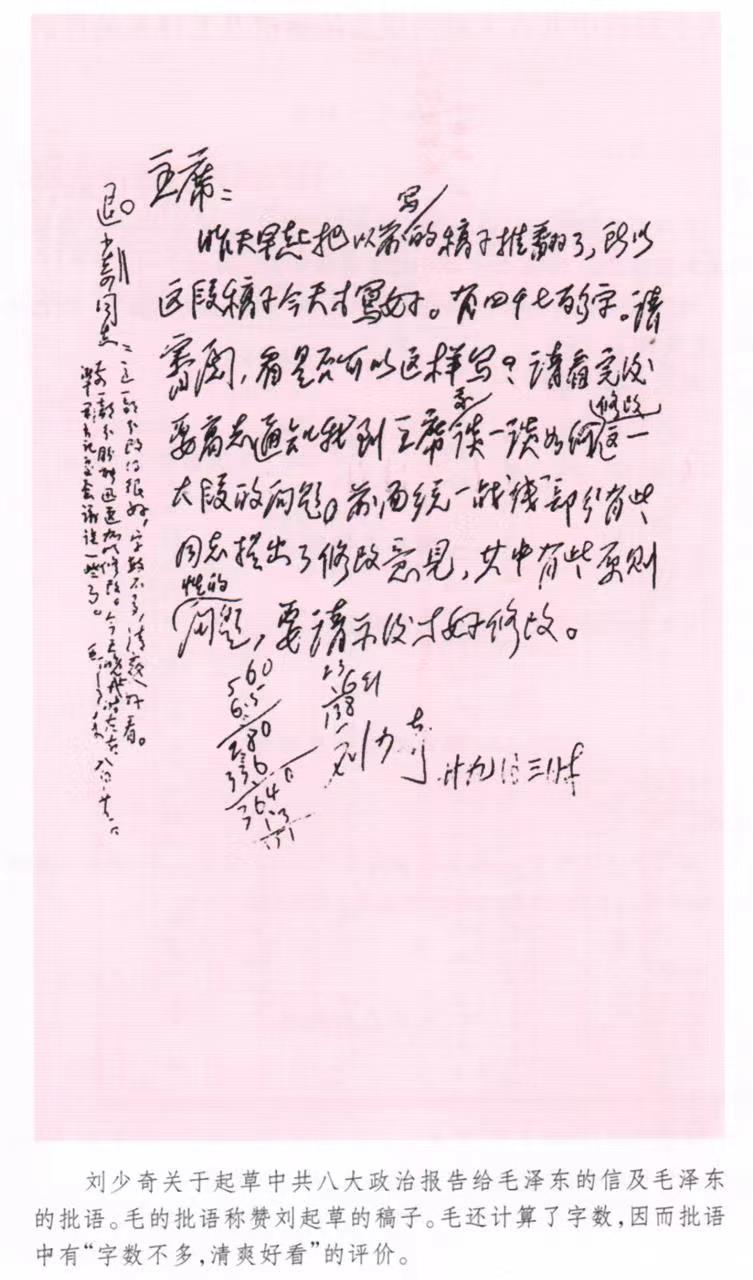 主席：
昨天早起把以前写的稿子推翻了，所以
这段稿子今天才写好。有四千七百字。请
审阅，看是否可以这样写？请看完后
要高志通知我到主席处谈一谈如何修改这一
大段的问题。前面统一战线部分有些
同志提出了修改意见，其中有些原则
性的问题，要请示后才好修改。
刘少奇 廿九日三时
560
6.5
280
336
3640
23
6
138
退。少奇同志：这一部分改得很好，字数不多，清爽好看。
一部分盼迅速加以修改。今天晚
会议谈一些了。 毛泽东 八月
刘少奇关于起草中共八大政治报告给毛泽东的信及毛泽东
的批语。毛的批语称赞刘起草的稿子。毛还计算了字数，因而批语
中有“字数不多，清爽好看”的评价。